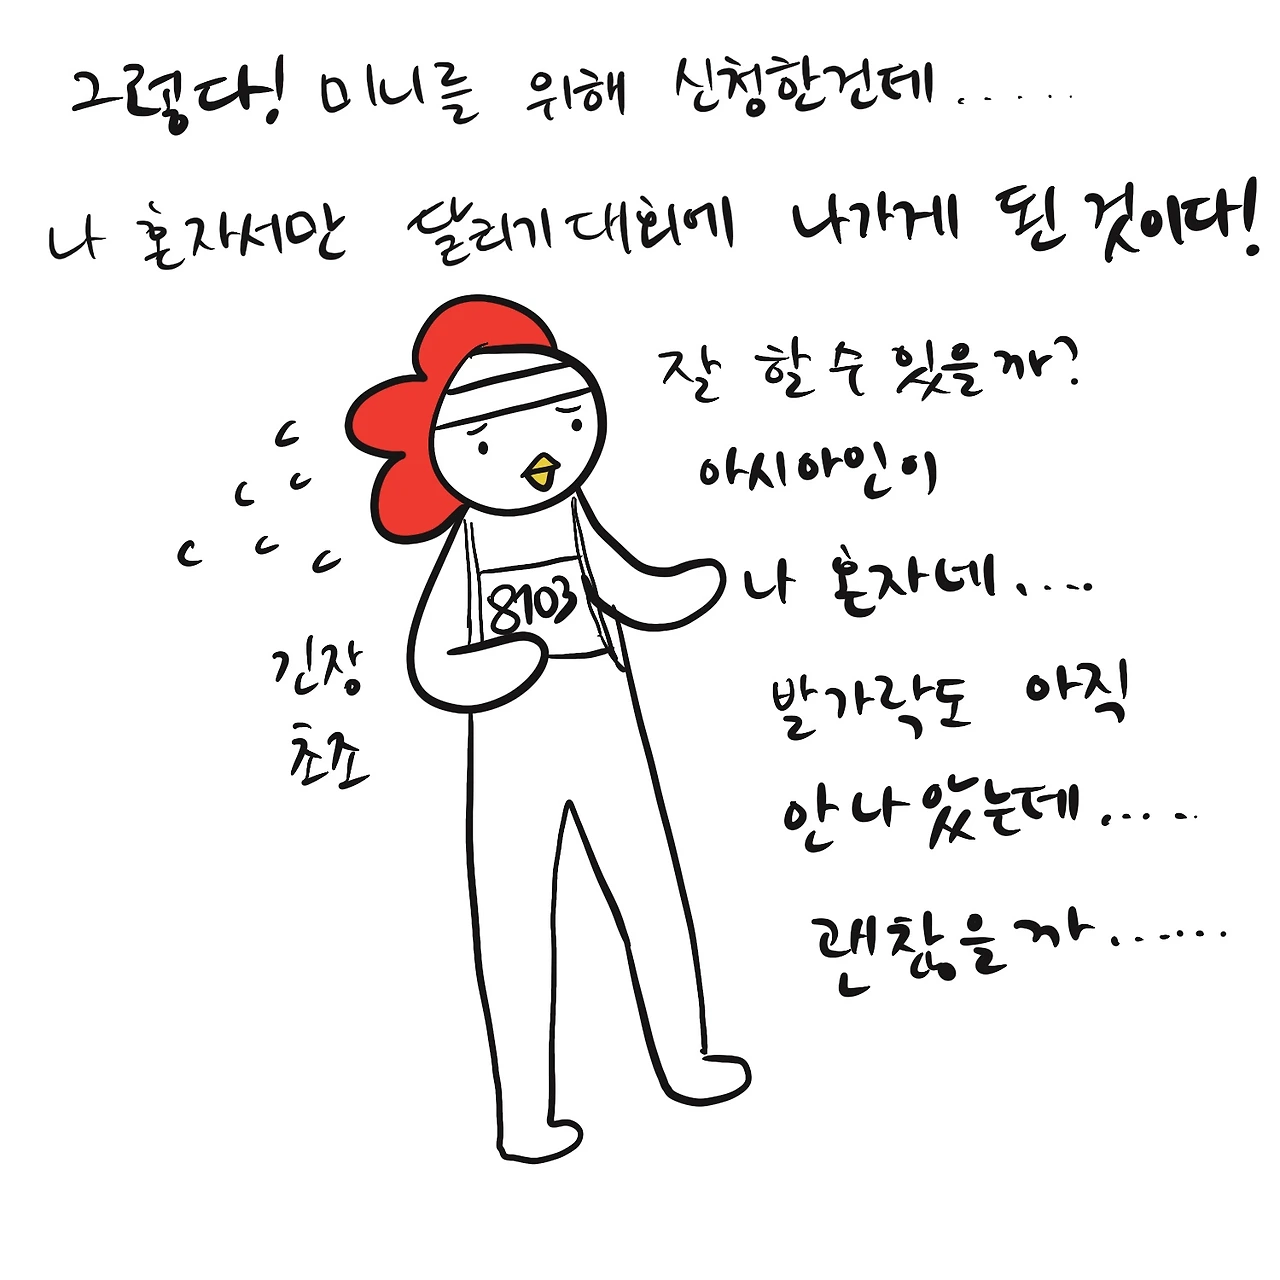 그렇다! 미니를 위해 신청한건데......
나 혼자서만 달리기 대회에 나가게 된 것이다!
잘 할 수 있을까?
아시아인이
나 혼자네....
발가락도 아직
안 나았는데.....
괜찮을까......
8103
긴장
초조